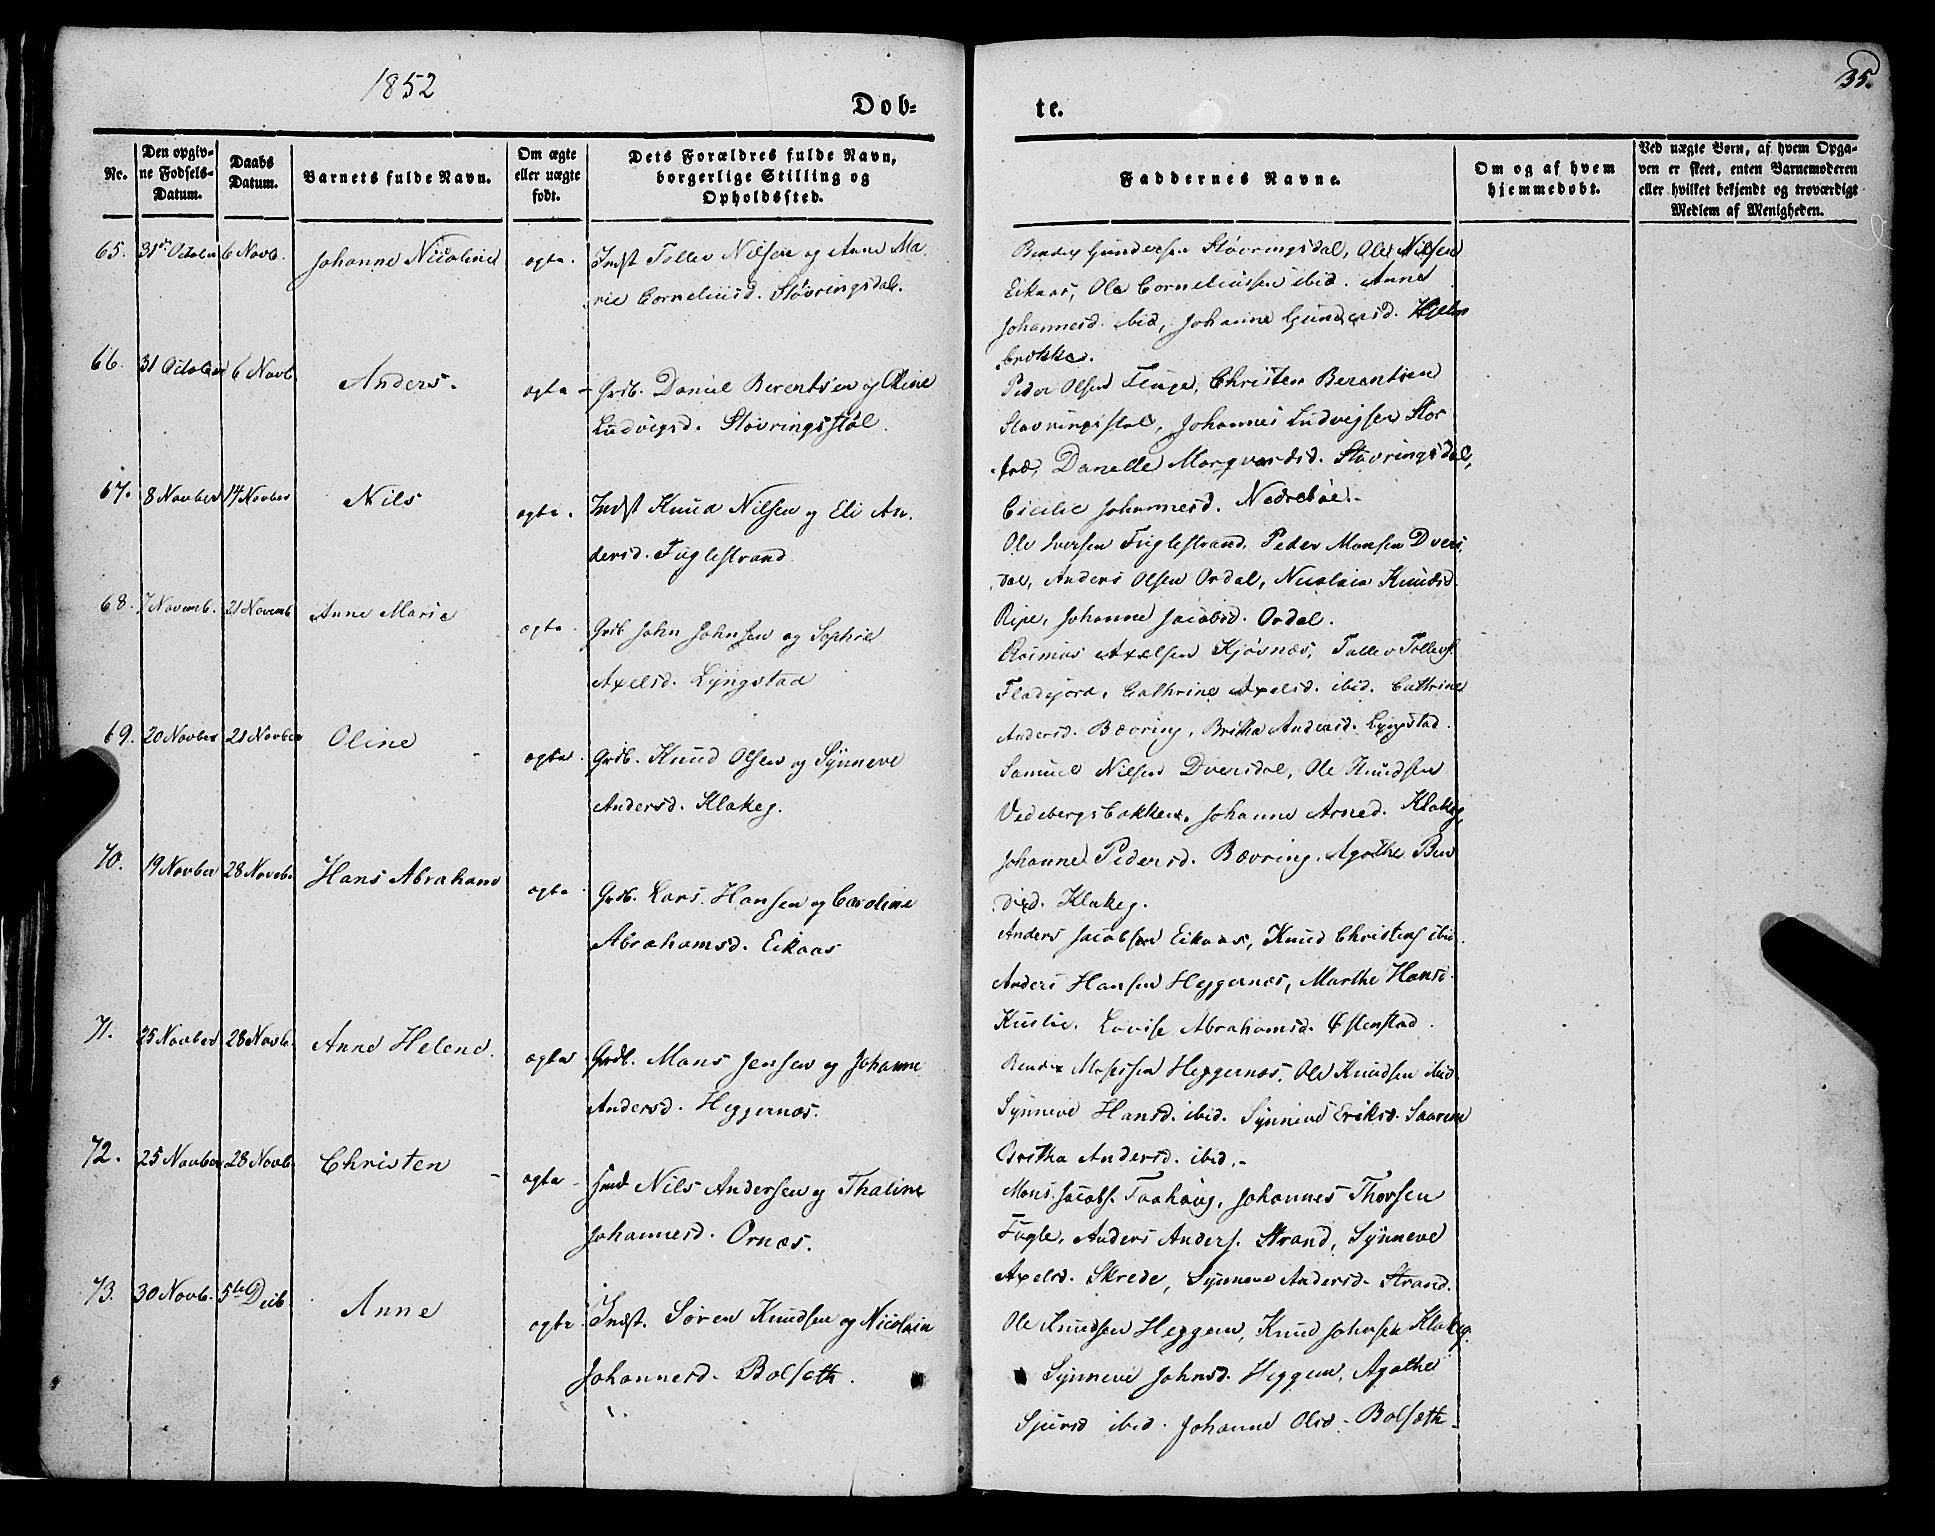 1852
35.
Dob=
te.
Nr.
Den opgiv=
ne Fødsels=
Datum.
Daabs
Datum.
Barnets fulde Navn.
Om ægte
eller uægte
født.
Dets Forældres fulde Navn,
borgerlige Stilling og
Opholdssted.
Faddernes Navne.
Om og af hvem
hjemmedøbt.
Ved uægte Børn, af hvem Opga=
ven er skeet, enten Barnemoderen
eller hvilket bekjendt og troværdigt
Medlem af Menigheden.
65. 31 October 6 Novb. Johanne Nicoline ægte. Indst Tollev Nilsen og Anne Ma,
rie Corneliusd. Støvringsdal.
Bendix Gundersen Støvringsdal, Ole Nilsen
Eikaas, Ole Corneliussen ibid. Anne
Johannesd. ibid, Johanne Gundersd.
brække.
66. 31 October 6 Novb. Anders. ægte - Grdb. Daniel Berentsen og Oline
Ludvigsd. Støvringsstøl.
Peder Olsen Fluge, Christen Berentsen
Støvringsstøl, Johannes Ludvigsen
Danelle Marqvardsd. Støvringsdal,
Cicilie Johannesd. Nedrebøe.-
67. 8 Novber 14 Novber Nils ægte. Indst Knud Nilsen og Eli An,
dersd. Fuglestrand
Ole Iversen Fuglestrand, Peder Monsen Dvers,
dal, Anders Olsen Ordal, Nicolaia Knudsd.
Ripe, Johanne Jacobsd. Ordal.
68. 7 Novemb. 21 Novemb Anne Marie ægte Grdb John Johnsen og Sophie
Axelsd. Lyngstad
Rasmus Axelsen Kjøsnæs, Tollev Tollevs.
Fladejord, Cathrine Axelsd. ibid. Cathrine
Andersd. Bævring, Britha Andersd. Lyngstad.
69. 20 Novber 21 Novber Oline - ægte. Grdb. Knud Olsen og Synneve
Andersd. Klakeg.
Samuel Nilsen Dversdal, Ole Knudsen
Vedebergsbakken, Johanne Arned. Klakeg,
Johanne Pedersd. Bævring, Agothe Ben
dixd. Klakeg.
70. 19 Novber 28 Novbr. Hans Abraham ægte Grdb. Lars Hansen og Caroline
Abrahamsd. Eikaas
Anders Jacobsen Eikaas, Knud Christens ibid.
Anders Hansen Heggernæs, Marthe Hansd.
Kuslie, Lovise Abrahamsd. Østenstad.
71. 25 Novber 28 Novb. Anne Helene. ægte Grdb. Mons Jensen og Johanne
Andersd. Heggernæs.
Bendix Mosessen Heggernæs, Ole Knudsen ibid.
Synneve Hansd. ibid. Synneve Eriksd.
Britha Andersd. ibid.-
72. 25 Novber 28 Novb. Christen - ægte - Nils Andersen og Thaline
Johannesd. Ornæs.
Mons Jacobs. Faahaug, Johannes Thorsen
Fugle, Anders Anders. Strand, Synneve
Axelsd. Skrede, Synneve Andersd. Strand.
73. 30 Novb. 5te Decb. Anne ægte Indst. Søren Knudsen og Nicolaia
Johannesd. Bolsæth.
Ole Knudsen Heggem, Knud Johnsen Klakeg.
Synneve Johnsd. Heggem, Agathe
Sjursd ibid. Johanne Olsd. Bolsæth.